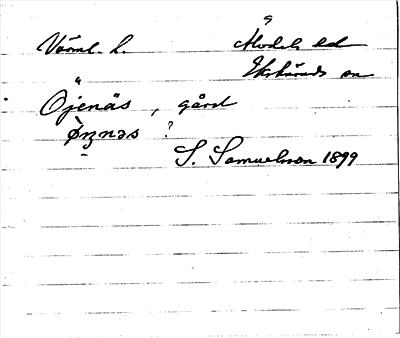 Värml. l. Älvdals hd
Ekshärads sn
Öjenäs, gård
?
S. Samuelsson 1899